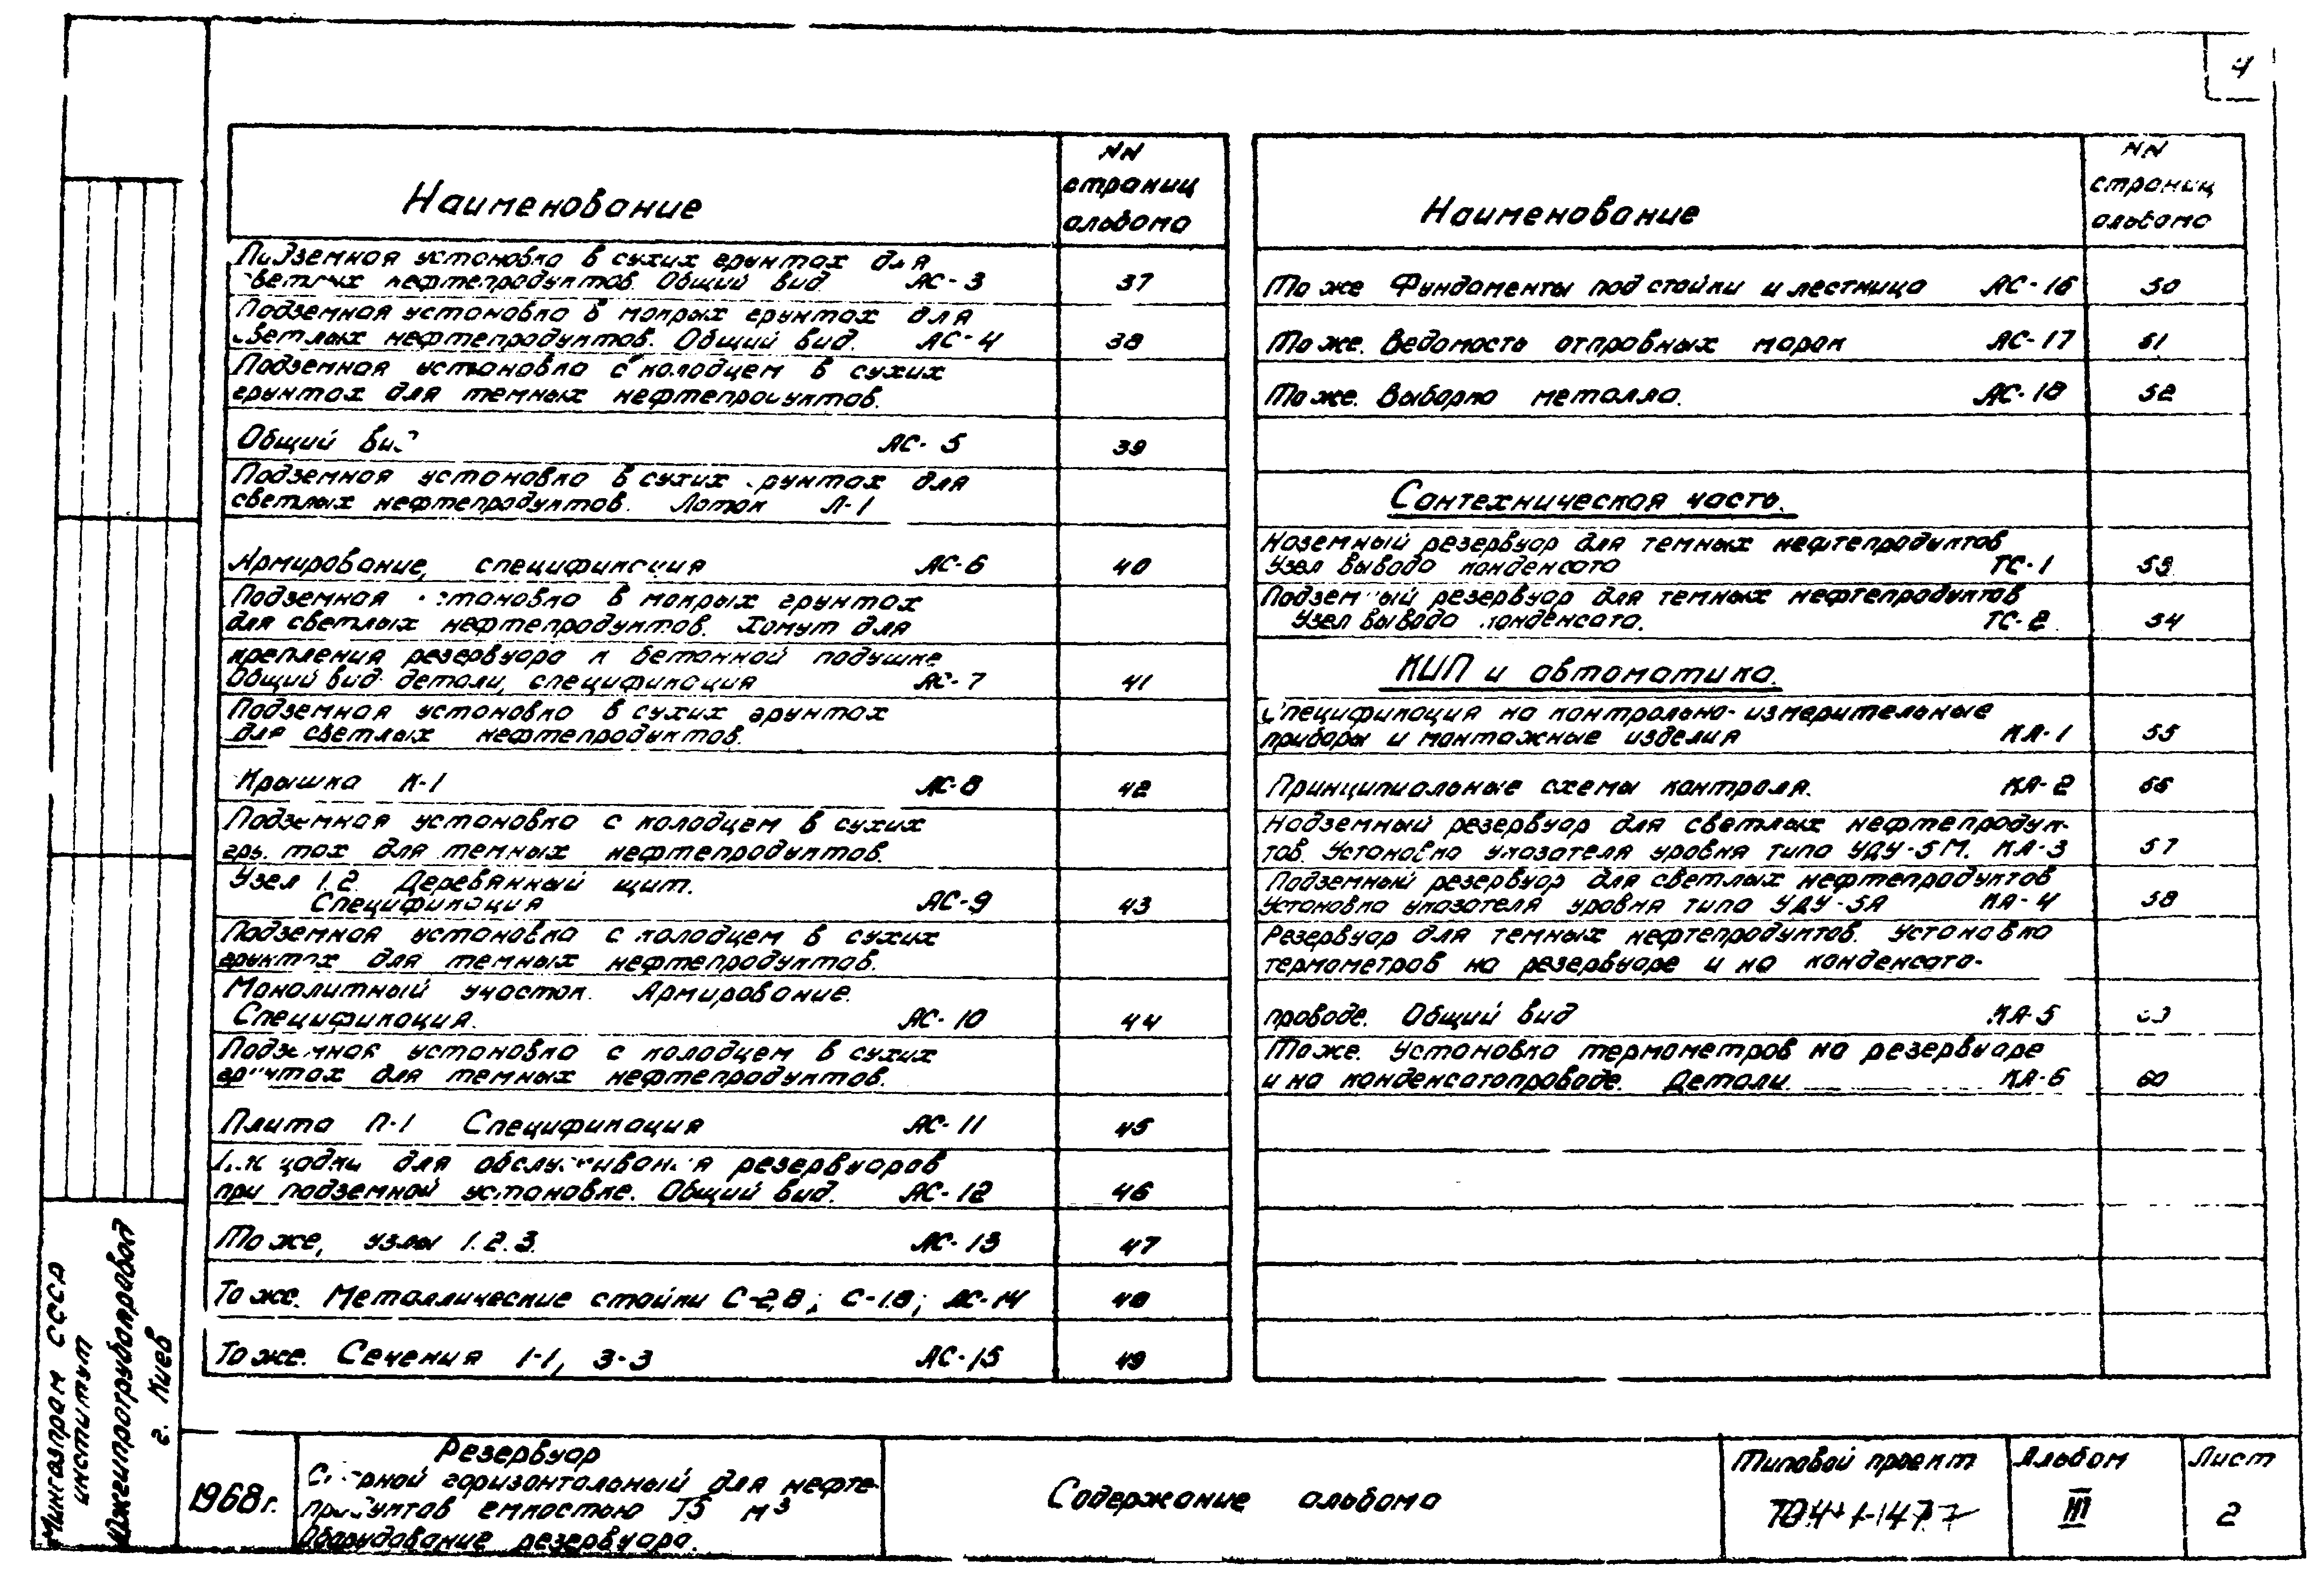 4
Наименование
NN
страниц
альбома
Подземная установка в сухих грунтах для
светлых нефтепродуктов. Общий вид АС-3 37
Подземная установка в мокрых грунтах для
светлых нефтепродуктов. Общий вид. АС-4 38
Подземная установка с колодцем в сухих
грунтах для темных нефтепродуктов.
Общий вид АС-5 39
Подземная установка в сухих грунтах для
светлых нефтепродуктов. Лоток Л-1
Армирование, спецификация АС-6 40
Подземная установка в мокрых грунтах
для светлых нефтепродуктов. Хомут для
крепления резервуара к бетонной подушке
Общий вид детали, спецификация АС-7 41
Подземная установка в сухих грунтах
для светлых нефтепродуктов.
Крышка К-1 АС-8 42
Подземная установка с колодцем в сухих
грунтах для темных нефтепродуктов.
Узел 1.2. Деревянный щит.
Спецификация АС-9 43
Подземная установка с колодцем в сухих
грунтах для темных нефтепродуктов.
Монолитный участок. Армирование.
Спецификация. АС-10 44
Подземная установка с колодцем в сухих
грунтах для темных нефтепродуктов.
Плита П-1 Спецификация АС-11 45
Площадки для обслуживания резервуаров
при подземной установке. Общий вид. АС-12 46
То же, узлы 1.2.3. АС-13 47
То же. Металлические стойки С-2,8; С-1.8; АС-14 48
То же. Сечения 1-1, 3-3 АС-15 49
Наименование
NN
страниц
альбома
То же Фундаменты под стойки и лестница АС-16 50
То же. Ведомость отправных марок АС-17 51
То же. Выборка металла. АС-18 52
Сантехническая часть.
Наземный резервуар для темных нефтепродуктов
Узел вывода конденсата ТС-1 53
Подземный резервуар для темных нефтепродуктов
Узел вывода конденсата. ТС-2 54
КИП и автоматика.
Спецификация на контрольно-измерительные
приборы и монтажные изделия КА-1 55
Принципиальные схемы контроля. КА-2 56
Надземный резервуар для светлых нефтепродук-
тов. Установка указателя уровня типа УДУ-5М. КА-3 57
Подземный резервуар для светлых нефтепродуктов
Установка указателя уровня типа УДУ-5А КА-4 58
Резервуар для темных нефтепродуктов. Установка
термометров на резервуаре и на конденсато-
проводе. Общий вид КА-5
То же. Установка термометров на резервуаре
и на конденсатопроводе. Детали. КА-6 60
Мингазпром СССР
институт
Южгипротрубопровод
г. Киев
1968г.
Резервуар
Сварной горизонтальный для нефте-
продуктов емкостью 75 м³
Оборудование резервуара.
Содержание альбома
Типовой проект
704-1-147
Альбом
III
Лист
2